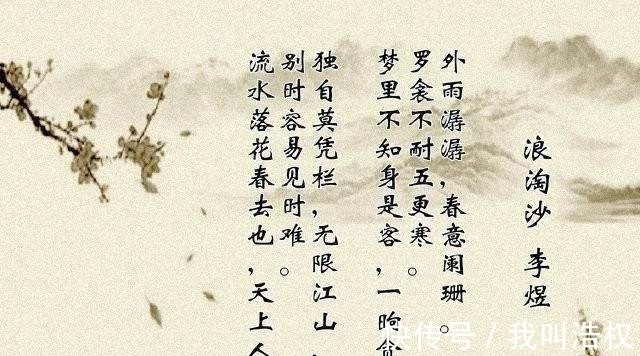 浪淘沙 李煜
外雨潺潺，春意阑珊。
罗衾不耐五更寒。
梦里不知身是客，一晌贪
独自莫凭栏，无限江山，
别时容易见时难。
流水落花春去也，天上人
快传号 / 我叫浩权